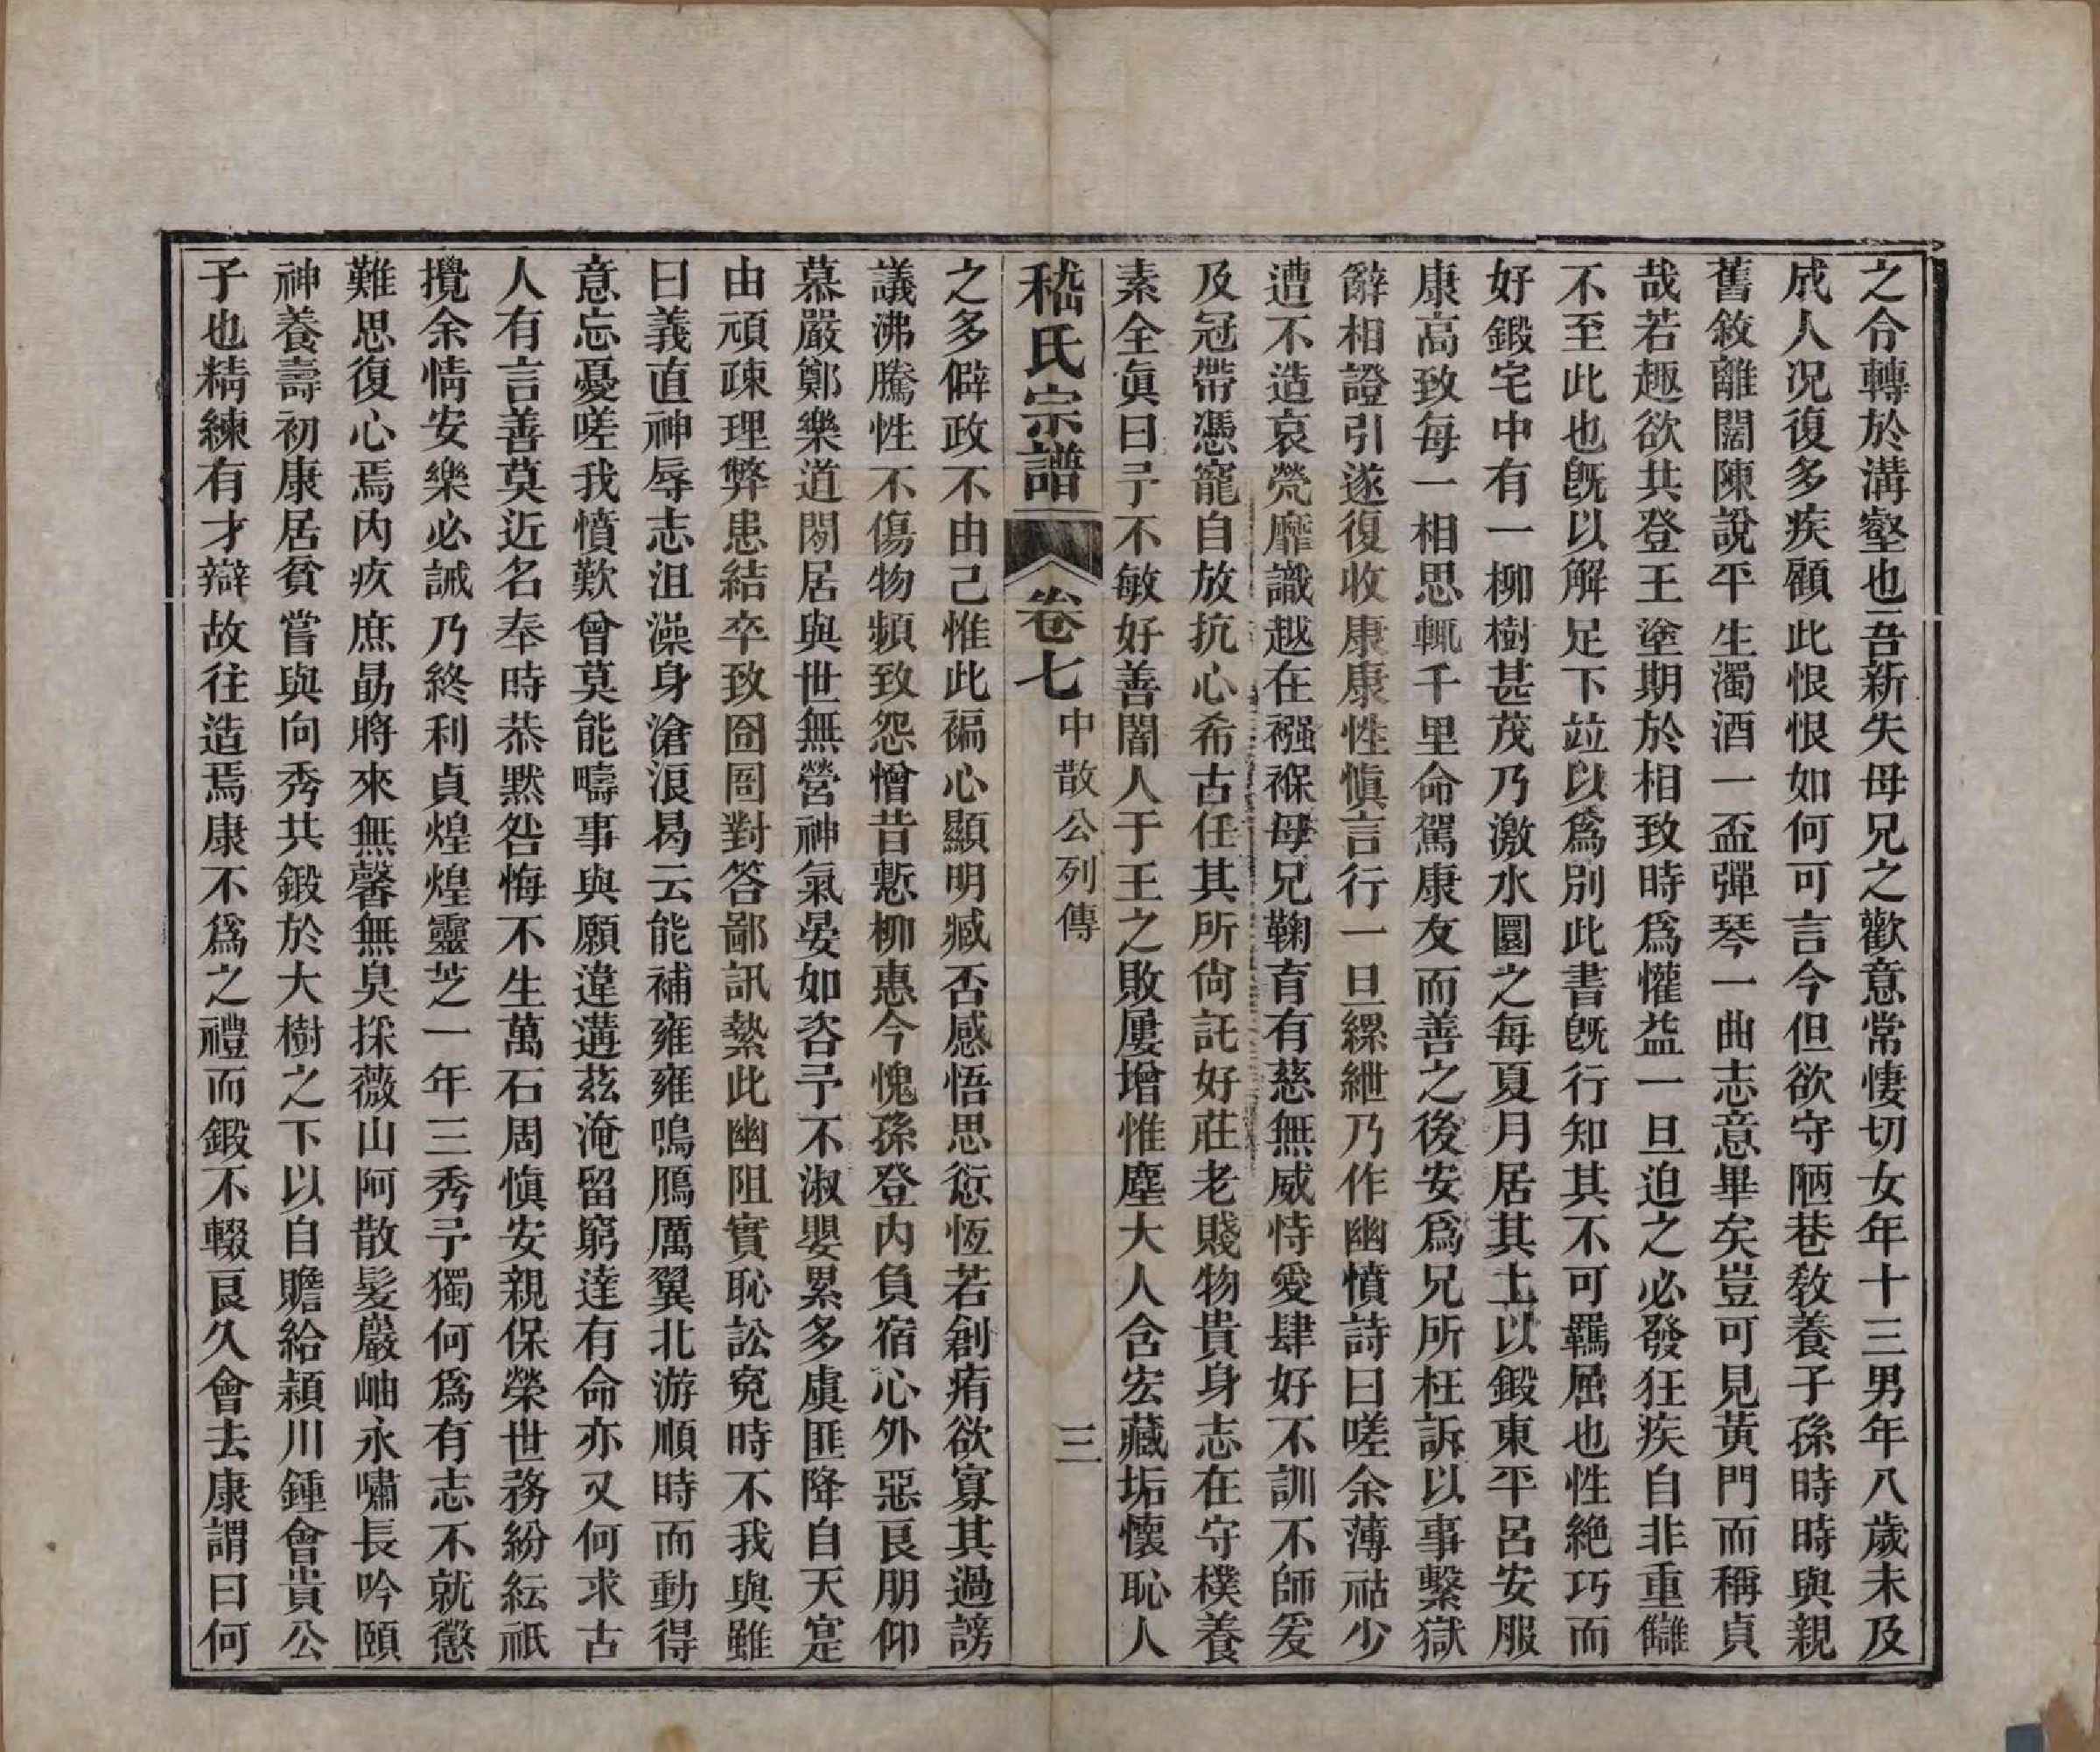 之令轉於溝壑也吾新失母兄之歡意常悽切女年十三男年八歲未及
成人况復多疾顧此恨恨如何可言今但欲守陋巷敎養子孫時時與親
舊敘離闊陳說平生濁酒一盃彈琴一曲志意畢矣豈可見黃門而稱貞
哉若趣欲共登王塗期於相致時爲懽益一旦迫之必發狂疾自非重讎
不至此也旣以解足下竝以爲別此書旣行知其不可羈屈也性絶巧而
好鍛宅中有一柳樹甚茂乃激水圜之每夏月居其土以鍛東平呂安服
康高致每一相思輒千里命駕康友而善之後安爲兄所枉訴以事繫獄
辭相證引遂復收康康性愼言行一旦縲紲乃作幽憤詩曰嗟余薄祜少
遭不造哀煢靡識越在襁褓母兄鞠育有慈無威恃愛肆好不訓不師爰
及冠帶憑寵自放抗心希古任其所尙託好莊老賤物貴身志在守樸養
素全眞曰予不敏好善闇人于王之敗屢增惟塵大人含宏藏垢懷恥人
嵇氏宗譜 卷七 中散公列傳 三
之多僻政不由己惟此褊心顯明臧否感悟思愆恆若創痏欲寡其過謗
議沸騰性不傷物頻致怨憎昔慙柳惠今愧孫登内負宿心外惡良朋仰
慕嚴鄭樂道閑居與世無營神氣晏如咨予不淑嬰累多虞匪降自天寔
由頑疎理弊患結卒致囹圄對答鄙訊縶此幽阻實恥訟寃時不我與雖
曰義直神辱志沮澡身滄浪曷云能補雍雍鳴鴈厲翼北游順時而動得
意忘憂嗟我憤歎曾莫能疇事與願違遘茲淹留窮達有命亦又何求古
人有言善莫近名奉時恭默咎悔不生萬石周愼安親保榮世務紛紜祇
攪余情安樂必誡乃終利貞煌煌靈芝一年三秀予獨何爲有志不就懲
難思復心焉內疚庶勗將來無馨無臭採薇山阿散髮巖岫永嘯長吟頤
神養壽初康居貧嘗與向秀共鍛於大樹之下以自贍給潁川鍾會貴公
子也精練有才辯故往造焉康不爲之禮而鍛不輟良久會去康謂曰何